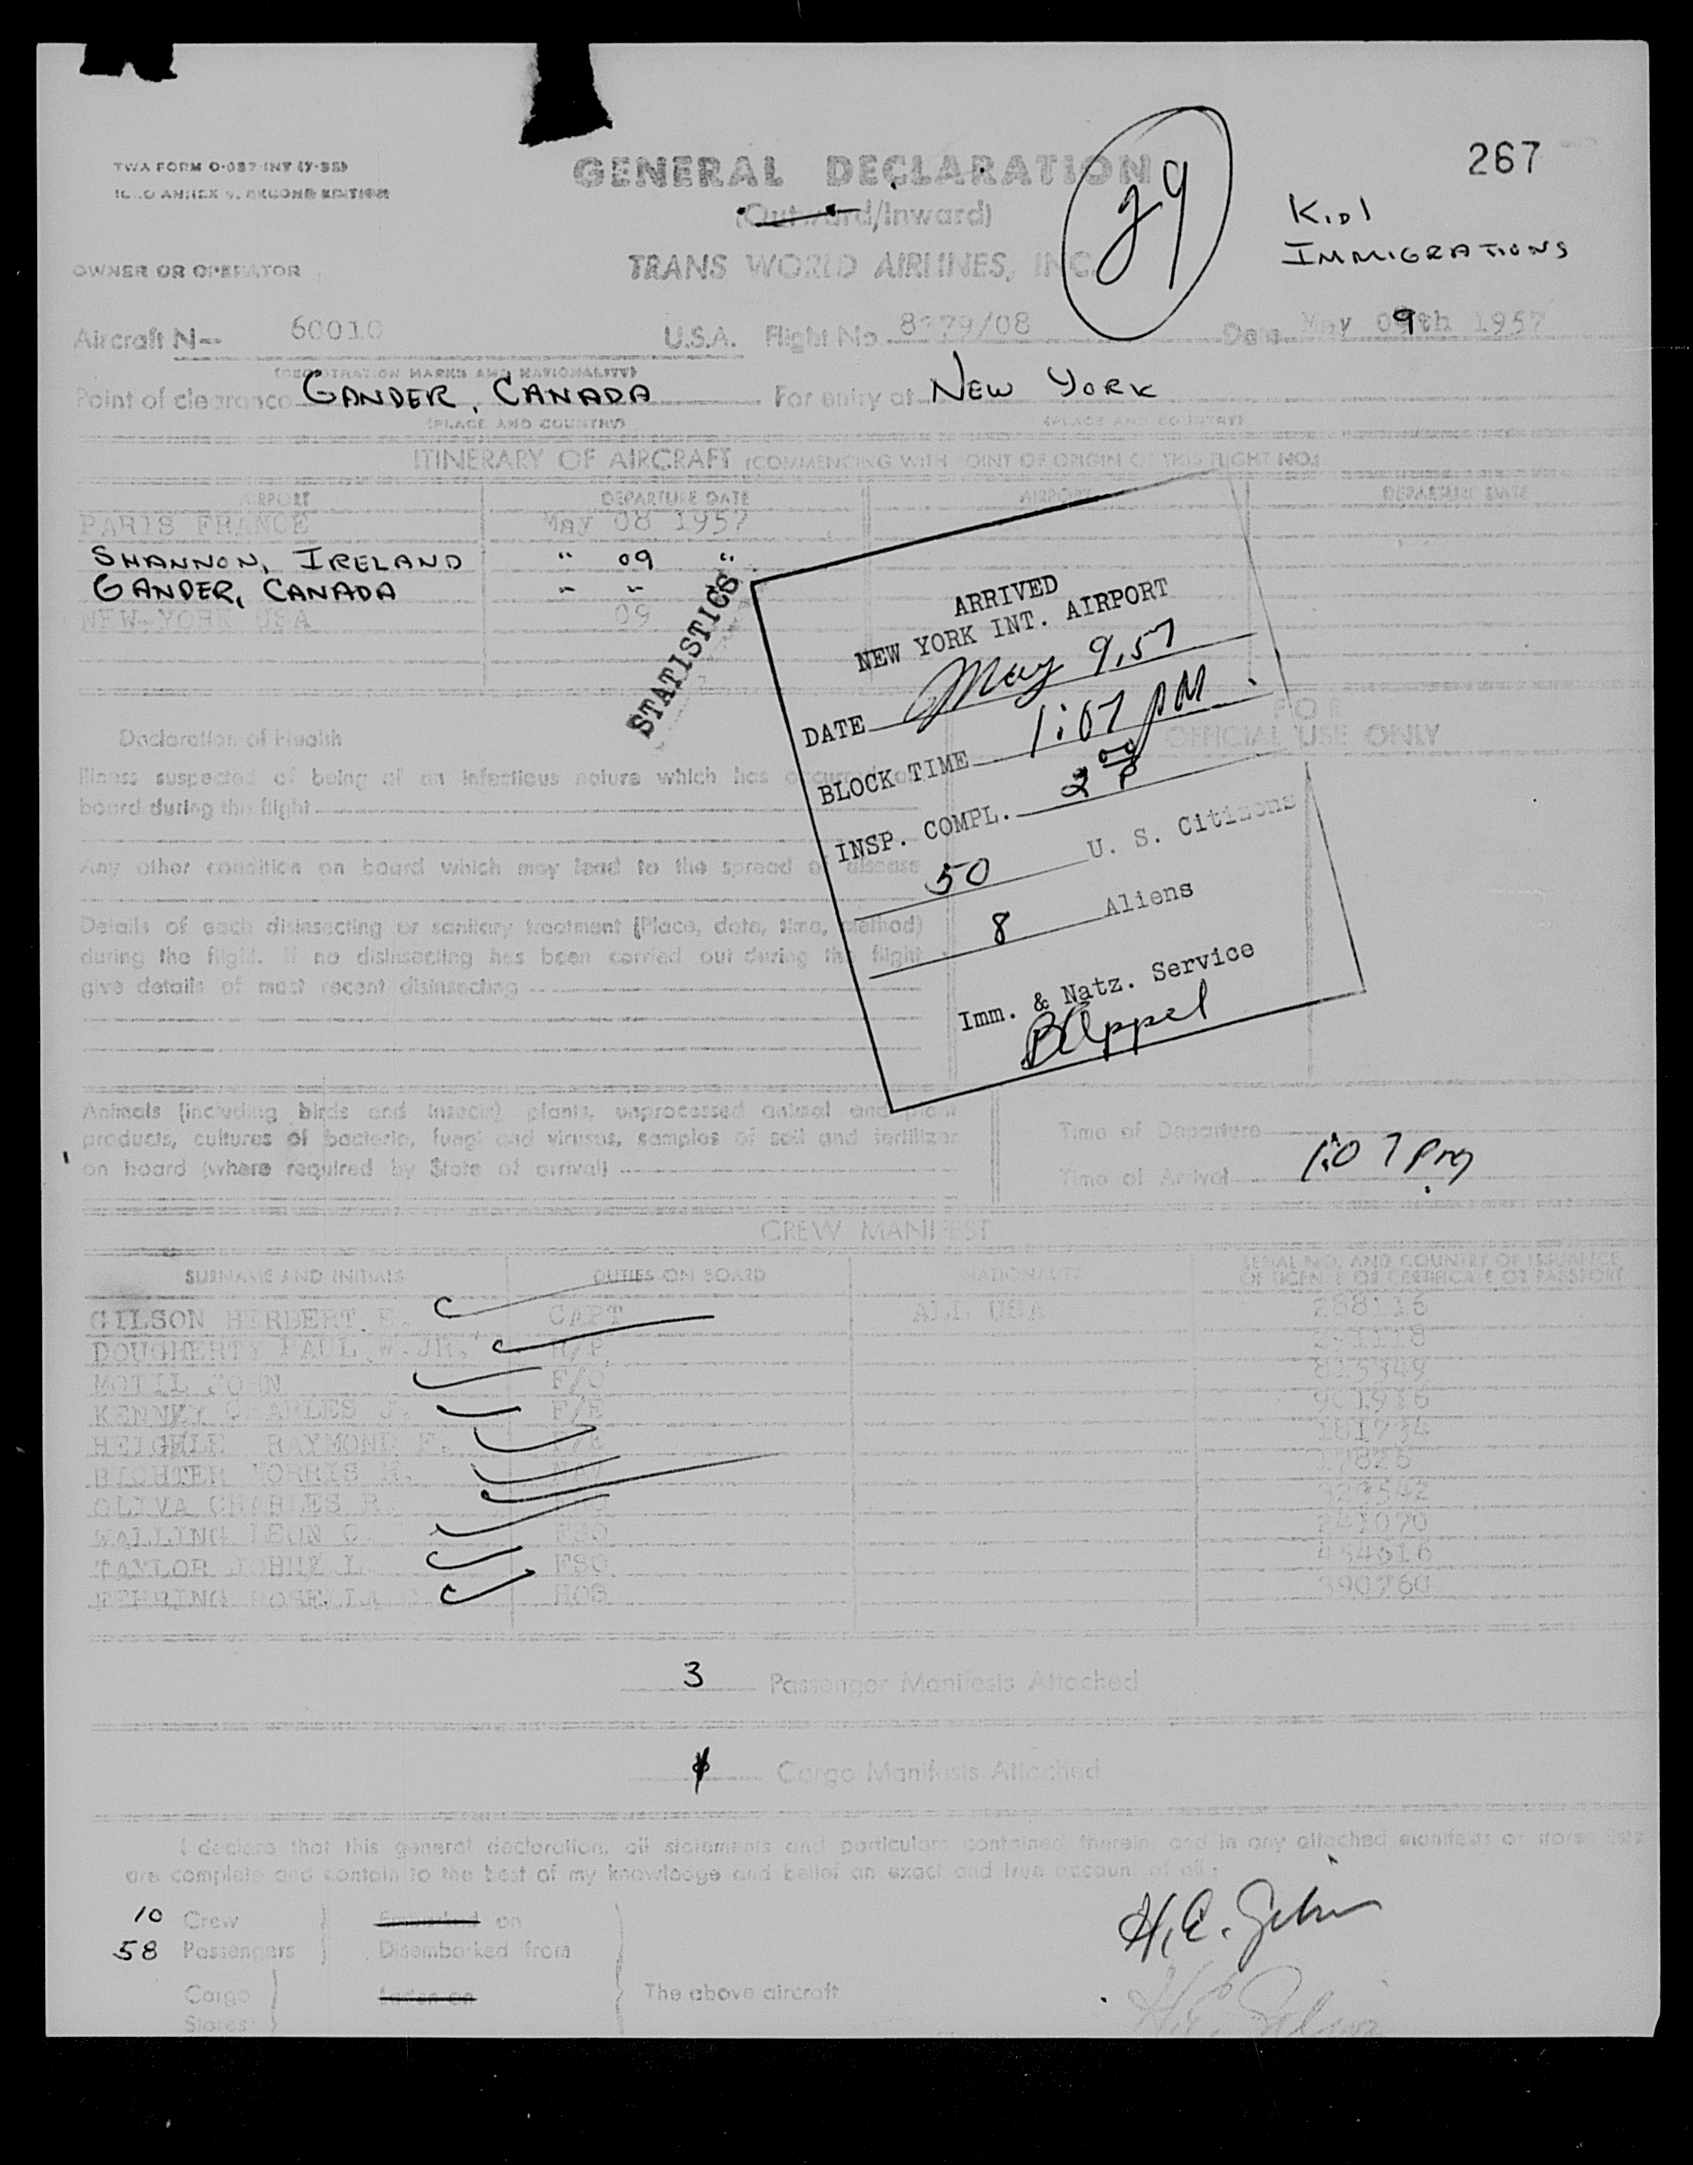 267
TWA FORM O-087-INT (7-55)
GENERAL DECLARATION
(Outward/Inward)
29
KIDL
IMMIGRATIONS
OWNER OR OPERATOR
TRANS WORLD AIRLINES, INC.
Aircraft N-- 60010 U.S.A. Flight No. /08 Date May 09th 1957
(REGISTRATION MARKS AND NATIONALITY)
Point of clearance GANDER, CANADA For entry at NEW YORK
(PLACE AND COUNTRY) (PLACE AND COUNTRY)
ITINERARY OF AIRCRAFT (COMMENCING WITH POINT OF ORIGIN OF THIS FLIGHT NO.)
AIRPORT DEPARTURE DATE AIRPORT DEPARTURE DATE
PARIS FRANCE May 08 1957
SHANNON, IRELAND " 09 "
GANDER, CANADA " " "
NEW YORK USA 09
STATISTICS
ARRIVED
NEW YORK INT. AIRPORT
DATE May 9, 57
BLOCK TIME 1:07 PM.
INSP. COMPL. 2 00 P
50 U. S. Citizens
8 Aliens
Imm. & Natz. Service
B Appel
FOR
OFFICIAL USE ONLY
Declaration of Health
Illness suspected of being of an infectious nature which has occurred on
board during the flight
Any other condition on board which may lead to the spread of disease
Details of each disinsecting or sanitary treatment (Place, date, time, method)
during the flight. If no disinsecting has been carried out during the flight
give details of most recent disinsecting
Animals (including birds and insects) plants, unprocessed animal and plant
products, cultures of bacteria, fungi and viruses, samples of soil and fertilizer
on board (where required by State of arrival)
Time of Departure
Time of Arrival 1:07 PM
CREW MANIFEST
SURNAME AND INITIALS DUTIES ON BOARD NATIONALITY SERIAL NO. AND COUNTRY OF ISSUANCE
OF LICENSE OR CERTIFICATE OR PASSPORT
GILSON HERBERT E. CAPT ALL USA 288116
DOUGHERTY PAUL W. JR.
MOTIL JOHN F/O
KENNEY CHARLES J. F/E
RAYMOND F. F/E
MORRIS NAV
OLIVA CHARLES R.
WALLING LEON C. FSO 241070
TAYLOR FSO 454616
HOS 390760
3 Passenger Manifests Attached
Cargo Manifests Attached
I declare that this general declaration, all statements and particulars contained therein, and in any attached manifests or stores lists
are complete and contain to the best of my knowledge and belief an exact and true account of all:
10 Crew Embarked on
58 Passengers Disembarked from
Cargo Laden on The above aircraft
Stores
H. E. Gilson
H. E. Gilson